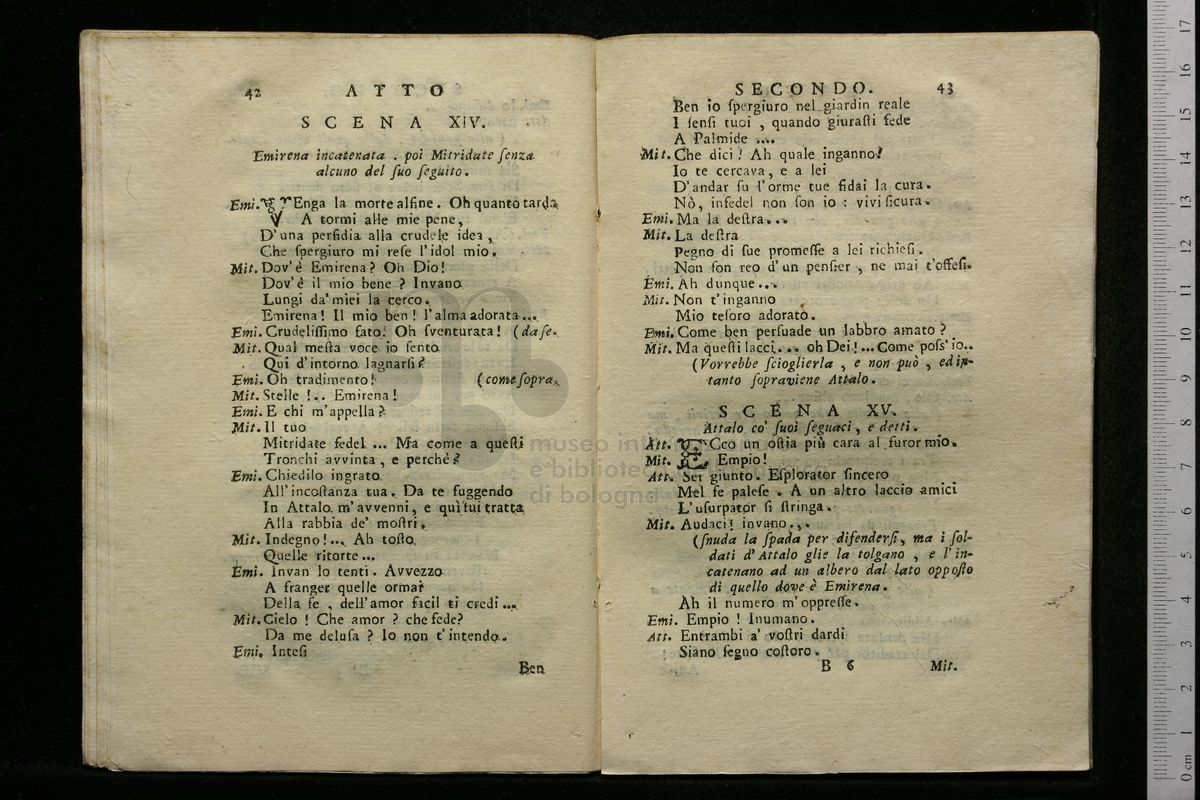 42 ATTO
SCENA XIV.
Emirena incatenata . poi Mitridate ſenza
alcuno del ſuo ſeguito.
Emi. VEnga la morte alfine. Oh quanto tarda
A tormi alle mie pene,
D'una perfidia alla crudele idea,
Che ſpergiuro mi reſe l'idol mio.
Mit. Dov'è Emirena? Oh Dio!
Dov'è il mio bene? Invano
Lungi da' miei la cerco.
Emirena! Il mio ben! l'alma adorata...
Emi. Crudeliſſimo fato! Oh ſventurata! (da ſe.
Mit. Qual meſta voce io ſento
Qui d'intorno lagnarſi?
Emi. Oh tradimento! (come ſopra.
Mit. Stelle !.. Emirena!
Emi. E chi m'appella?
Mit. Il tuo
Mitridate fedel ... Ma come a queſti
Tronchi avvinta, e perchè?
Emi. Chiedilo ingrato
All'incoſtanza tua. Da te fuggendo
In Attalo m'avvenni, e quì fui tratta
Alla rabbia de' moſtri.
Mit. Indegno!... Ah toſto
Quelle ritorte...
Emi. Invan lo tenti. Avvezzo
A franger quelle ormai
Della fe, dell'amor facil ti credi...
Mit. Cielo! Che amor? che fede?
Da me deluſa? Io non t'intendo.
Emi. Inteſi
Ben
SECONDO. 43
Ben io ſpergiuro nel giardin reale
I ſenſi tuoi, quando giuraſti fede
A Palmide ....
Mit. Che dici! Ah quale inganno!
Io te cercava, e a lei
D'andar ſu l'orme tue fidai la cura.
Nò, infedel non ſon io: vivi ſicura.
Emi. Ma la deſtra...
Mit. La deſtra
Pegno di ſue promeſſe a lei richieſi.
Non ſon reo d'un penſier, ne mai t'offeſi.
Emi. Ah dunque...
Mit. Non t'inganno
Mio teſoro adorato.
Emi. Come ben perſuade un labbro amato?
Mit. Ma queſti lacci... oh Dei!... Come poſs'io..
(Vorrebbe ſcioglierla, e non può, ed in-
tanto ſopraviene Attalo.
SCENA XV.
Attalo co' ſuoi ſeguaci, e detti.
Att. ECco un oſtia più cara al furor mio.
Mit. Empio!
Att. Sei giunto. Eſplorator ſincero
Mel fe paleſe. A un altro laccio amici
L'uſurpator ſi ſtringa.
Mit. Audaci! invano...
(ſnuda la ſpada per difenderſi, ma i ſol-
dati d'Attalo glie la tolgano, e l'in-
catenano ad un albero dal lato oppoſto
di quello dove è Emirena.
Ah il numero m'oppreſſe.
Emi. Empio! Inumano.
Att. Entrambi a' voſtri dardi
Siano ſegno coſtoro.
B 6 Mit.
museo in
e bibliote
di bologna
0 cm 1 2 3 4 5 6 7 8 9 10 11 12 13 14 15 16 17